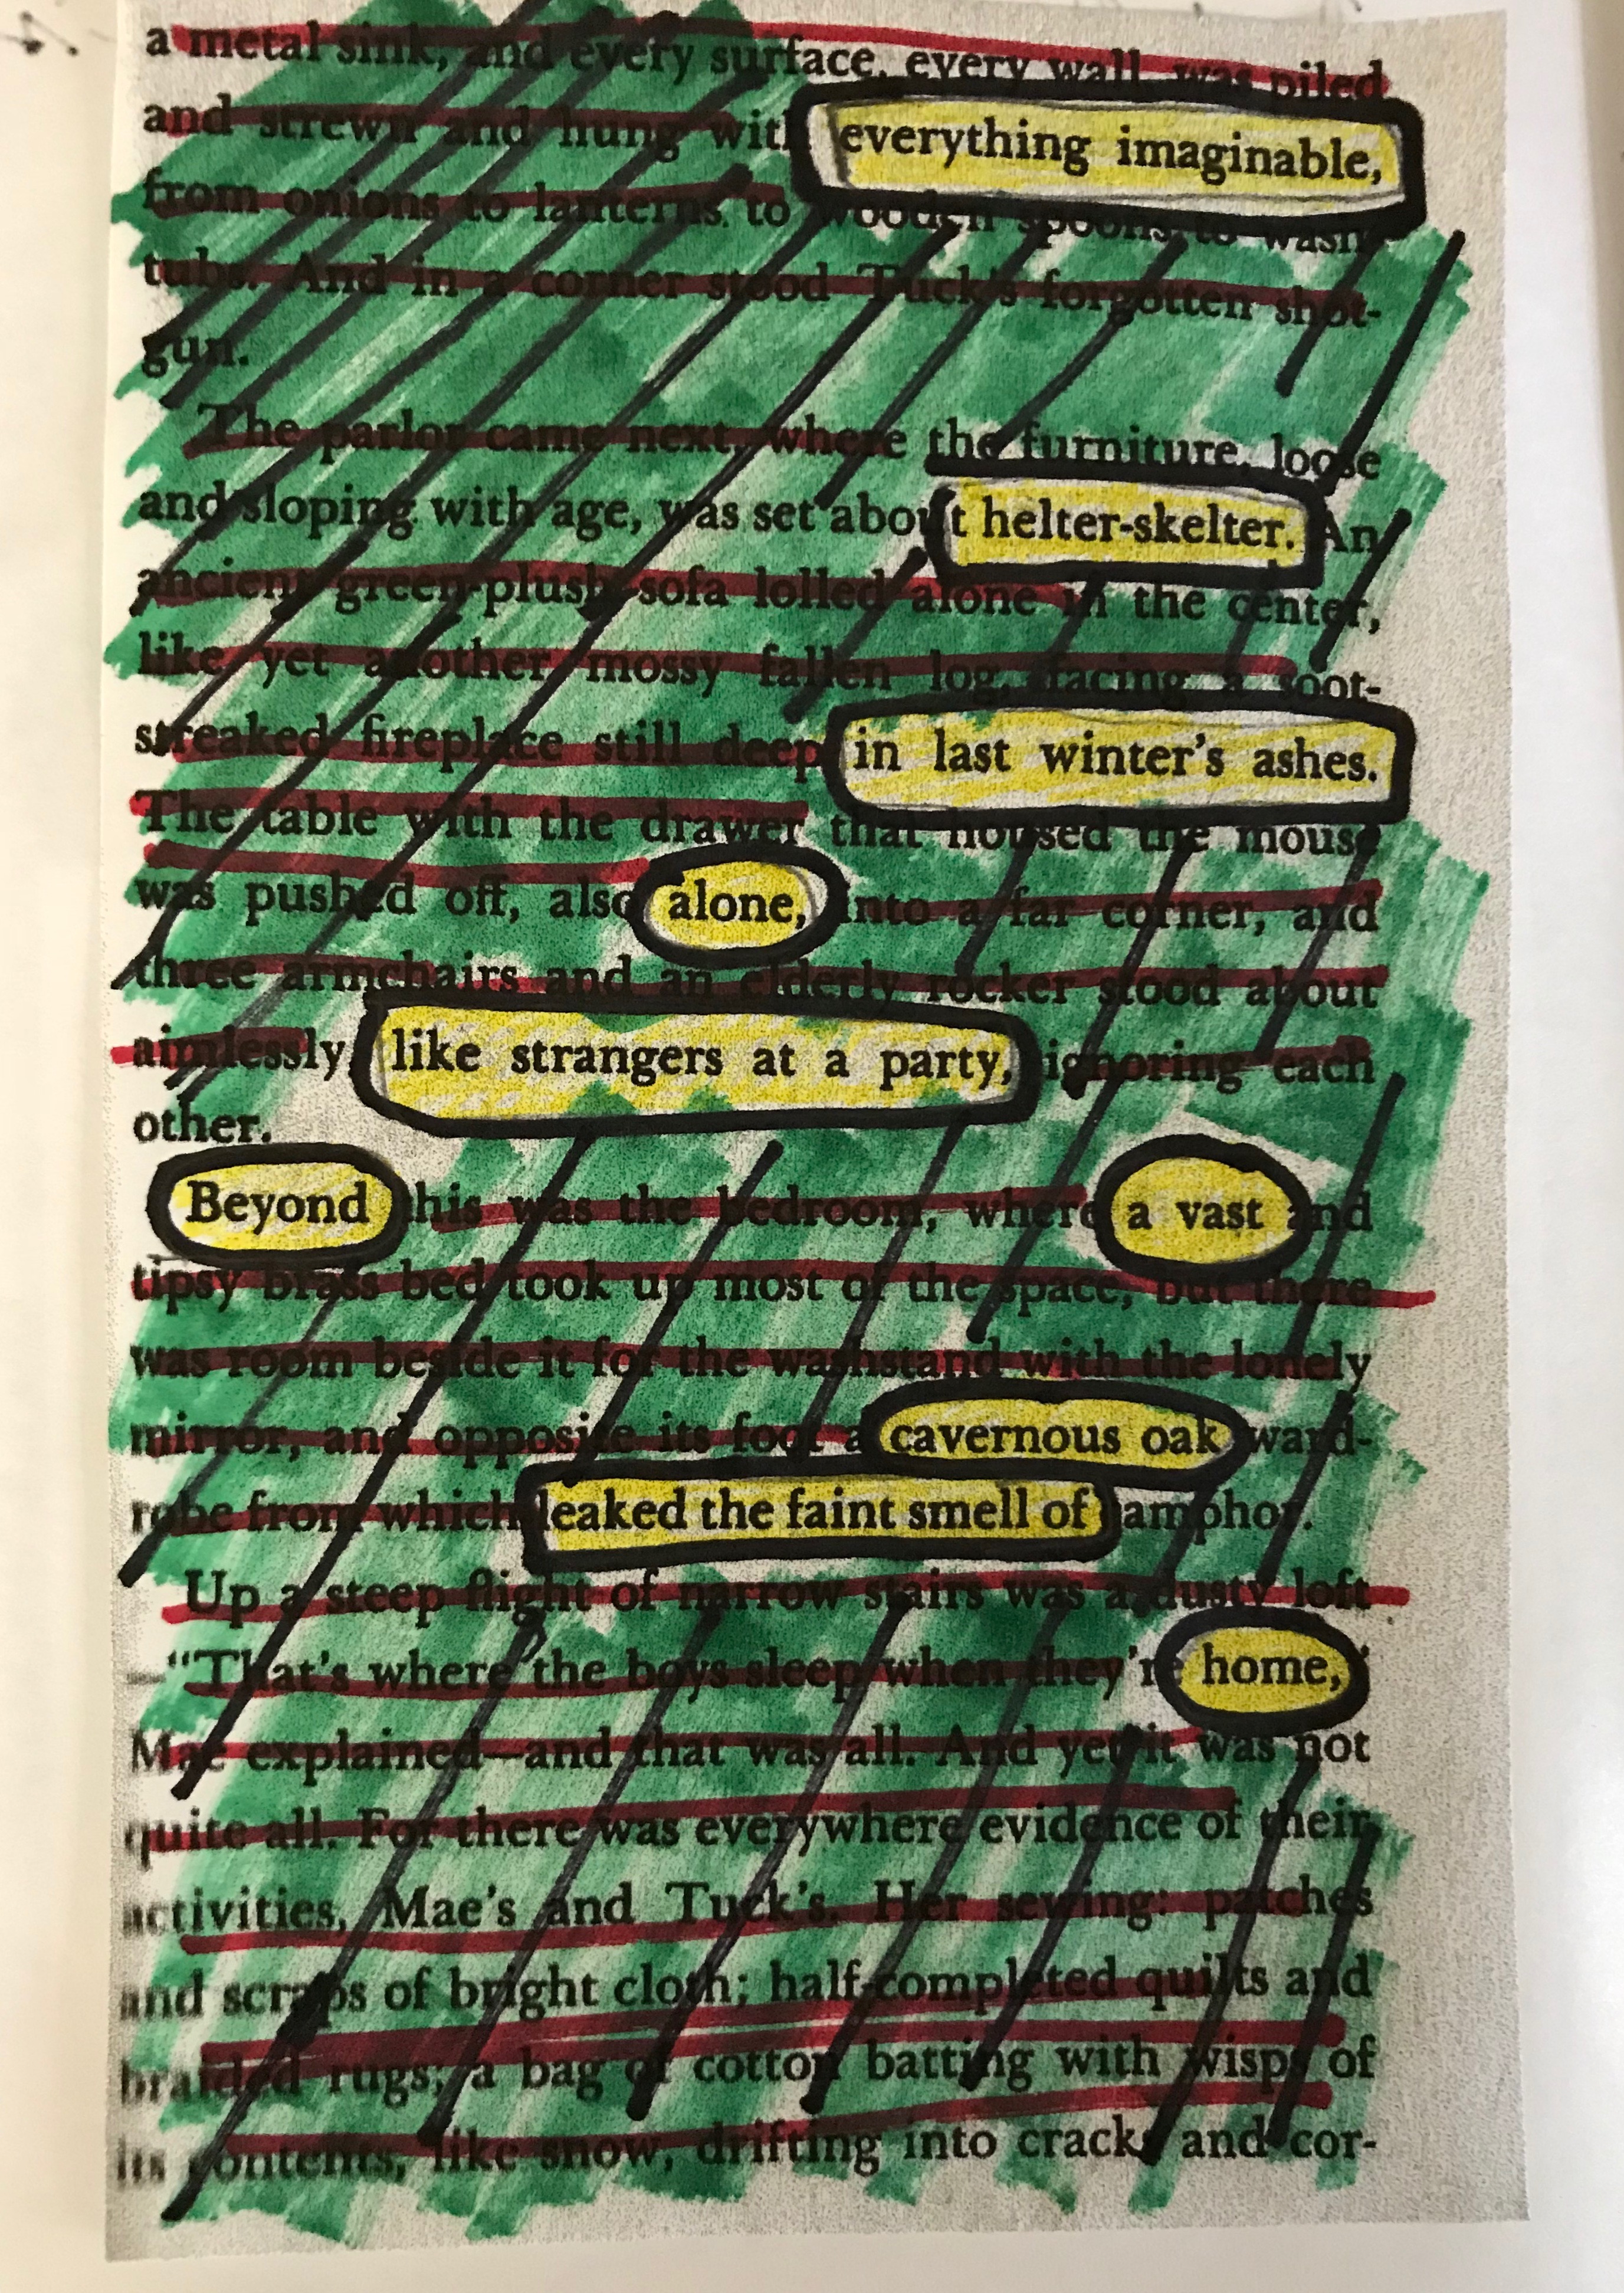 a metal sink, and every surface, every wall, was piled
and strewn and hung with everything imaginable,
from onions to lanterns to wooden spoons to wash-
tubs. And in a corner stood Tuck's forgotten shot-
gun.
The parlor came next, where the furniture, loose
and sloping with age, was set about helter-skelter. An
ancient green-plush sofa lolled alone in the center,
like yet another mossy fallen log, facing a soot-
streaked fireplace still deep in last winter's ashes.
The table with the drawer that housed the mouse
was pushed off, also alone, into a far corner, and
three armchairs and an elderly rocker stood about
aimlessly, like strangers at a party, ignoring each
other.
Beyond this was the bedroom, where a vast and
tipsy brass bed took up most of the space, but there
was room beside it for the washstand with the lonely
mirror, and opposite its foot a cavernous oak ward-
robe from which leaked the faint smell of camphor.
Up a steep flight of narrow stairs was a dusty loft
—"That's where the boys sleep when they're home,"
Mae explained—and that was all. And yet it was not
quite all. For there was everywhere evidence of their
activities, Mae's and Tuck's. Her sewing: patches
and scraps of bright cloth; half-completed quilts and
braided rugs; a bag of cotton batting with wisps of
its contents, like snow, drifting into cracks and cor-